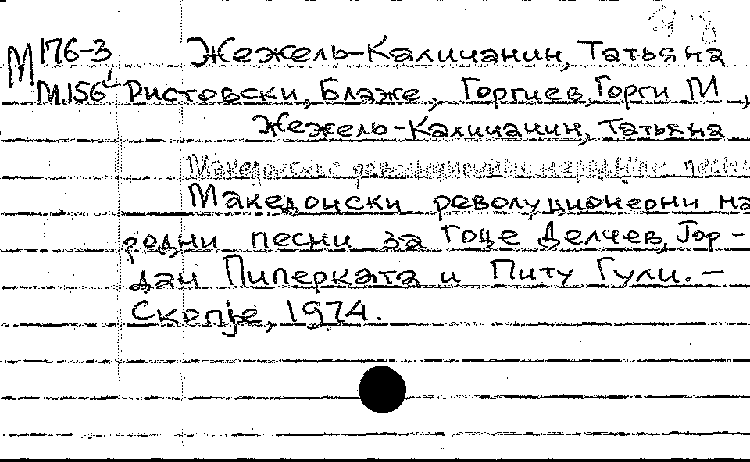 М 176-3 Жежель-Каличанин, Татьяна
М.156 Ристовски, Блаже, Горгиев, Горги М.,
Жежель-Каличанин, Татьяна
Македонски револуционерни на
родни песни за Гоце Делчев, Јор-
дан Пиперката и Питу Гули. –
Скопје, 1974.